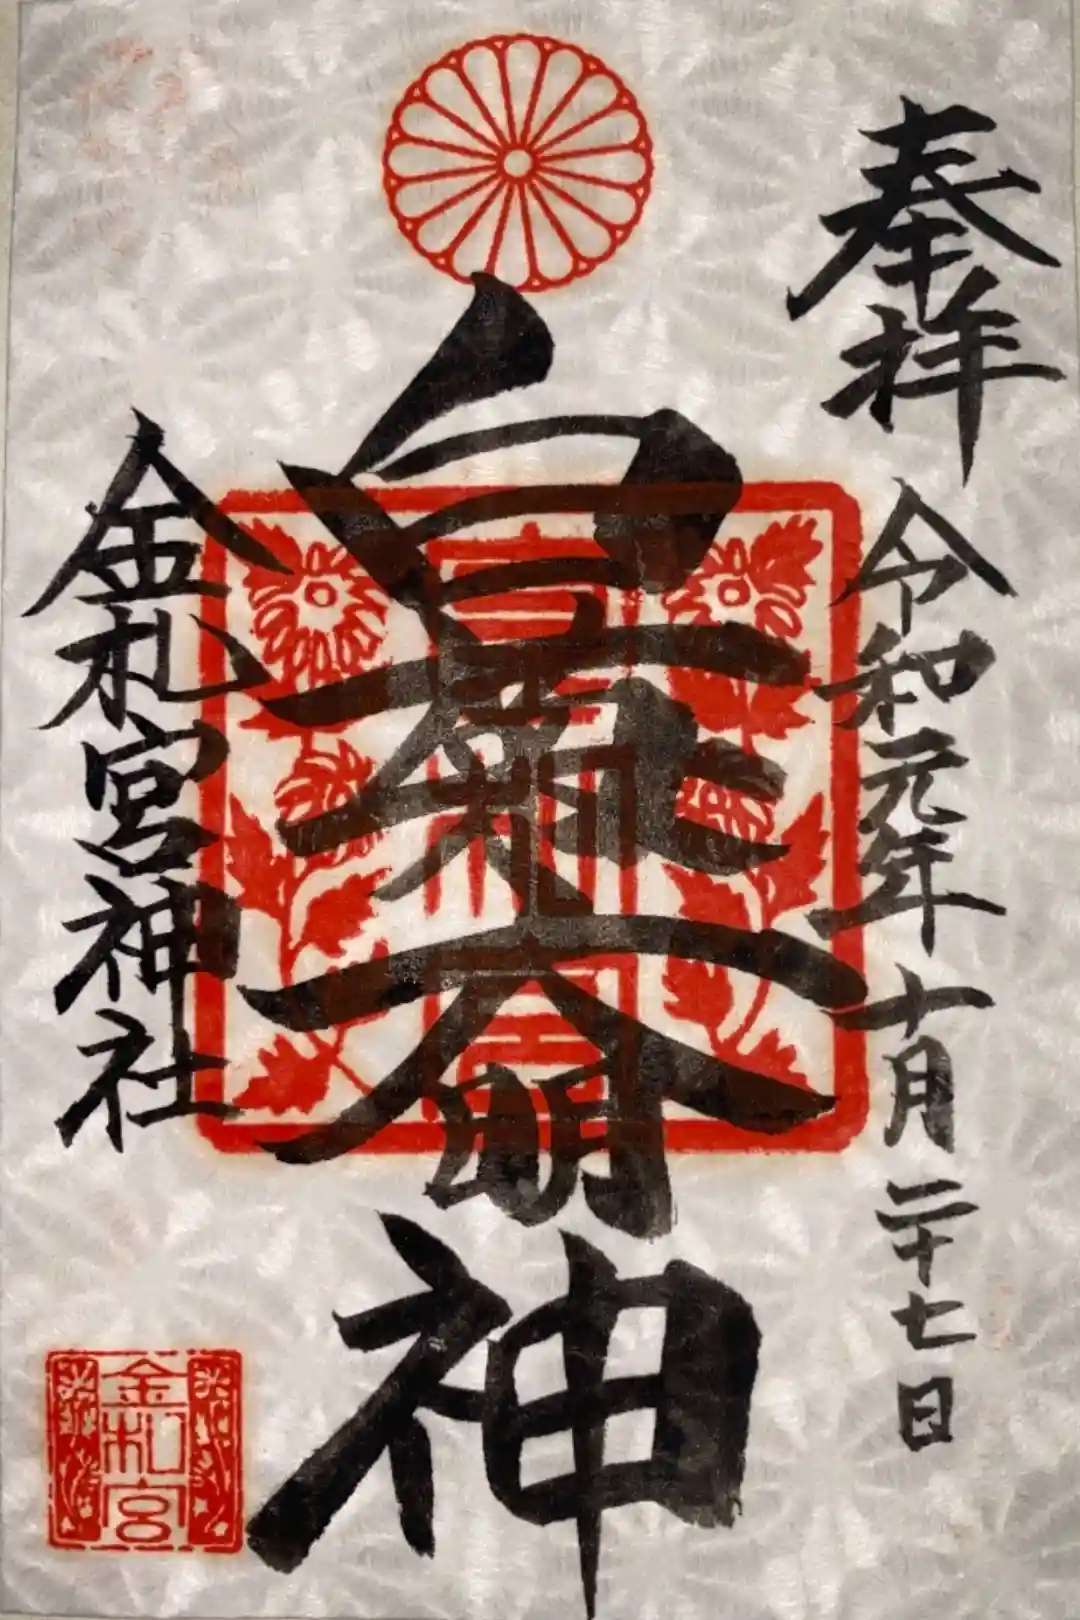 奉拝
令和元年十月二十七日
白菊大明神
金札宮
金札宮神社
金札宮